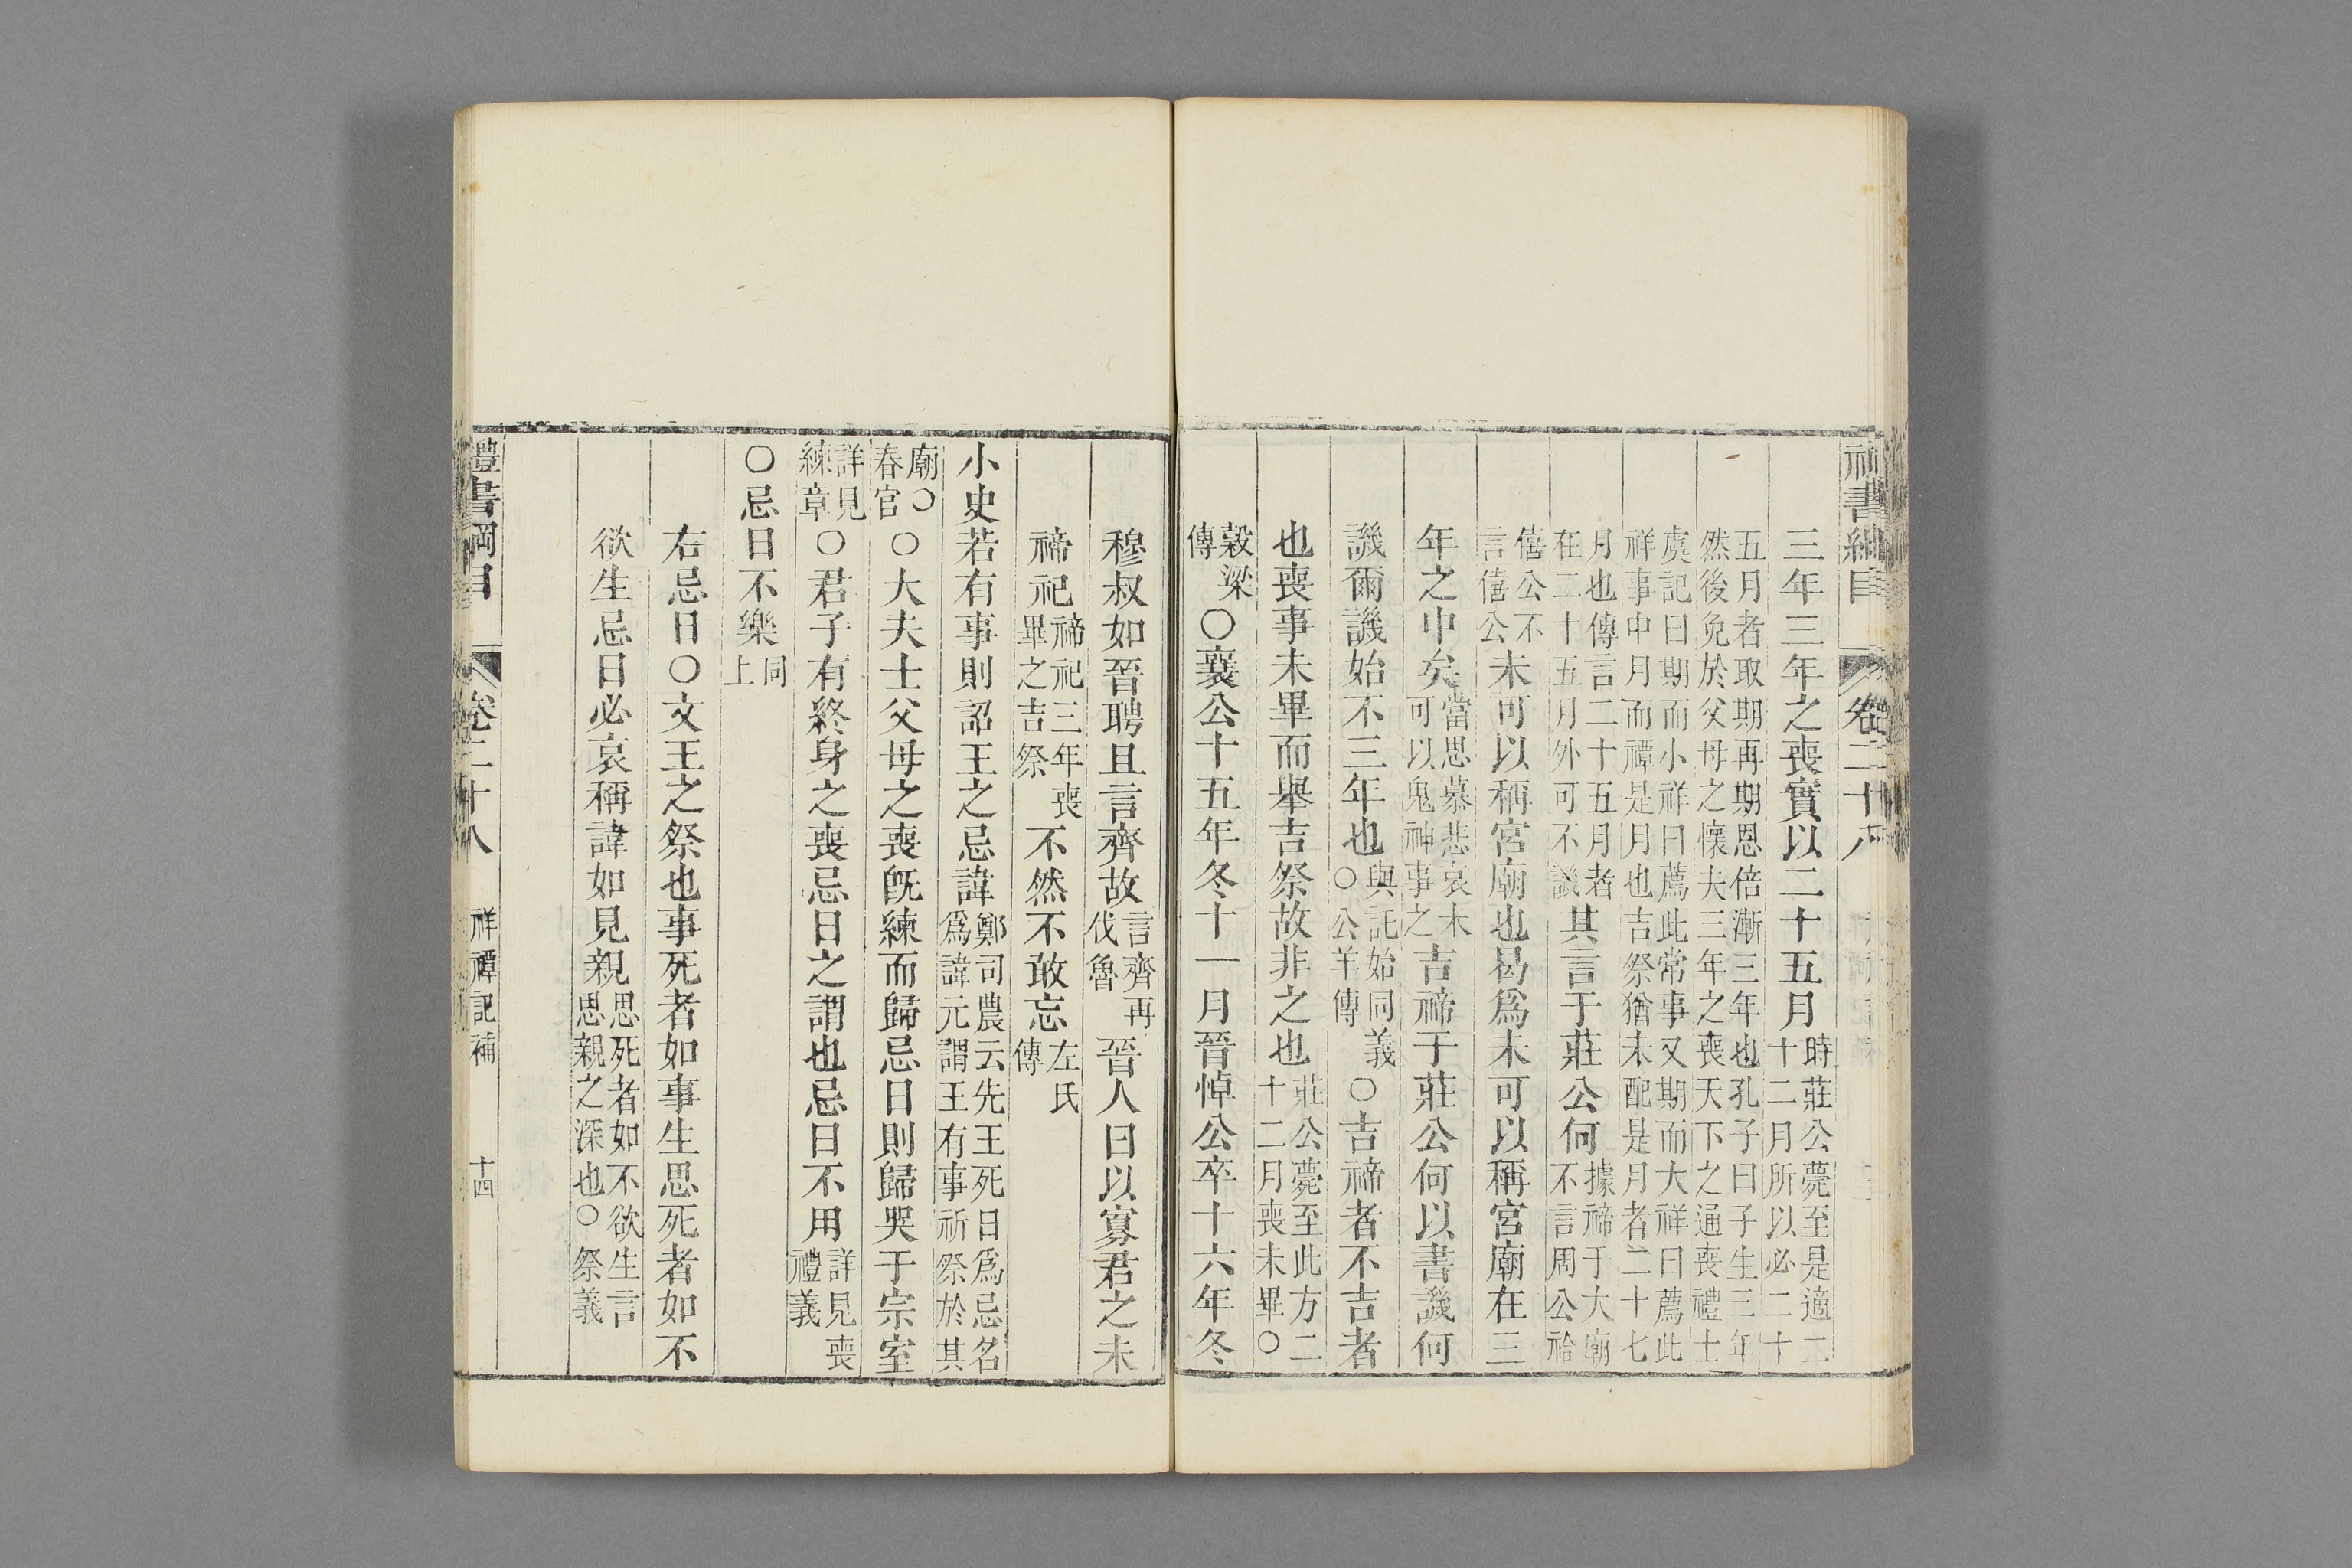 禮書綱目 卷二十八
三年三年之喪實以二十五月時莊公薨至是適二十二月所以必二十
五月者取期再期恩倍漸三年也孔子曰子生三年然後免於父母之懷夫三年之喪天下之通喪禮士
虞記曰期而小祥曰薦此常事又期而大祥曰薦此祥事中月而禫是月也吉祭猶未配是月者二十七
月也傳言二十五月者在二十五月外可不譏其言于莊公何據禘于大廟不言周公祫
僖公不言僖公未可以稱宮廟也曷爲未可以稱宮廟在三
年之中矣當思慕悲哀未可以鬼神事之吉禘于莊公何以書譏何
譏爾譏始不三年也與託始同義○公羊傳○吉禘者不吉者
也喪事未畢而舉吉祭故非之也莊公薨至此方二十二月喪未畢○
穀梁傳○襄公十五年冬十一月晉悼公卒十六年冬
穆叔如晉聘且言齊故言齊再伐魯晉人曰以寡君之未
禘祀禘祀三年喪畢之吉祭不然不敢忘左氏傳
小史若有事則詔王之忌諱鄭司農云先王死日爲忌名爲諱元謂王有事祈祭於其
廟○春官○大夫士父母之喪旣練而歸忌日則歸哭于宗室
詳見練章○君子有終身之喪忌日之謂也忌日不用詳見喪禮義
○忌日不樂同上
右忌日○文王之祭也事死者如事生思死者如不
欲生忌日必哀稱諱如見親思死者如不欲生言思親之深也○祭義
禮書綱目 卷二十八 祥禫記補 十四